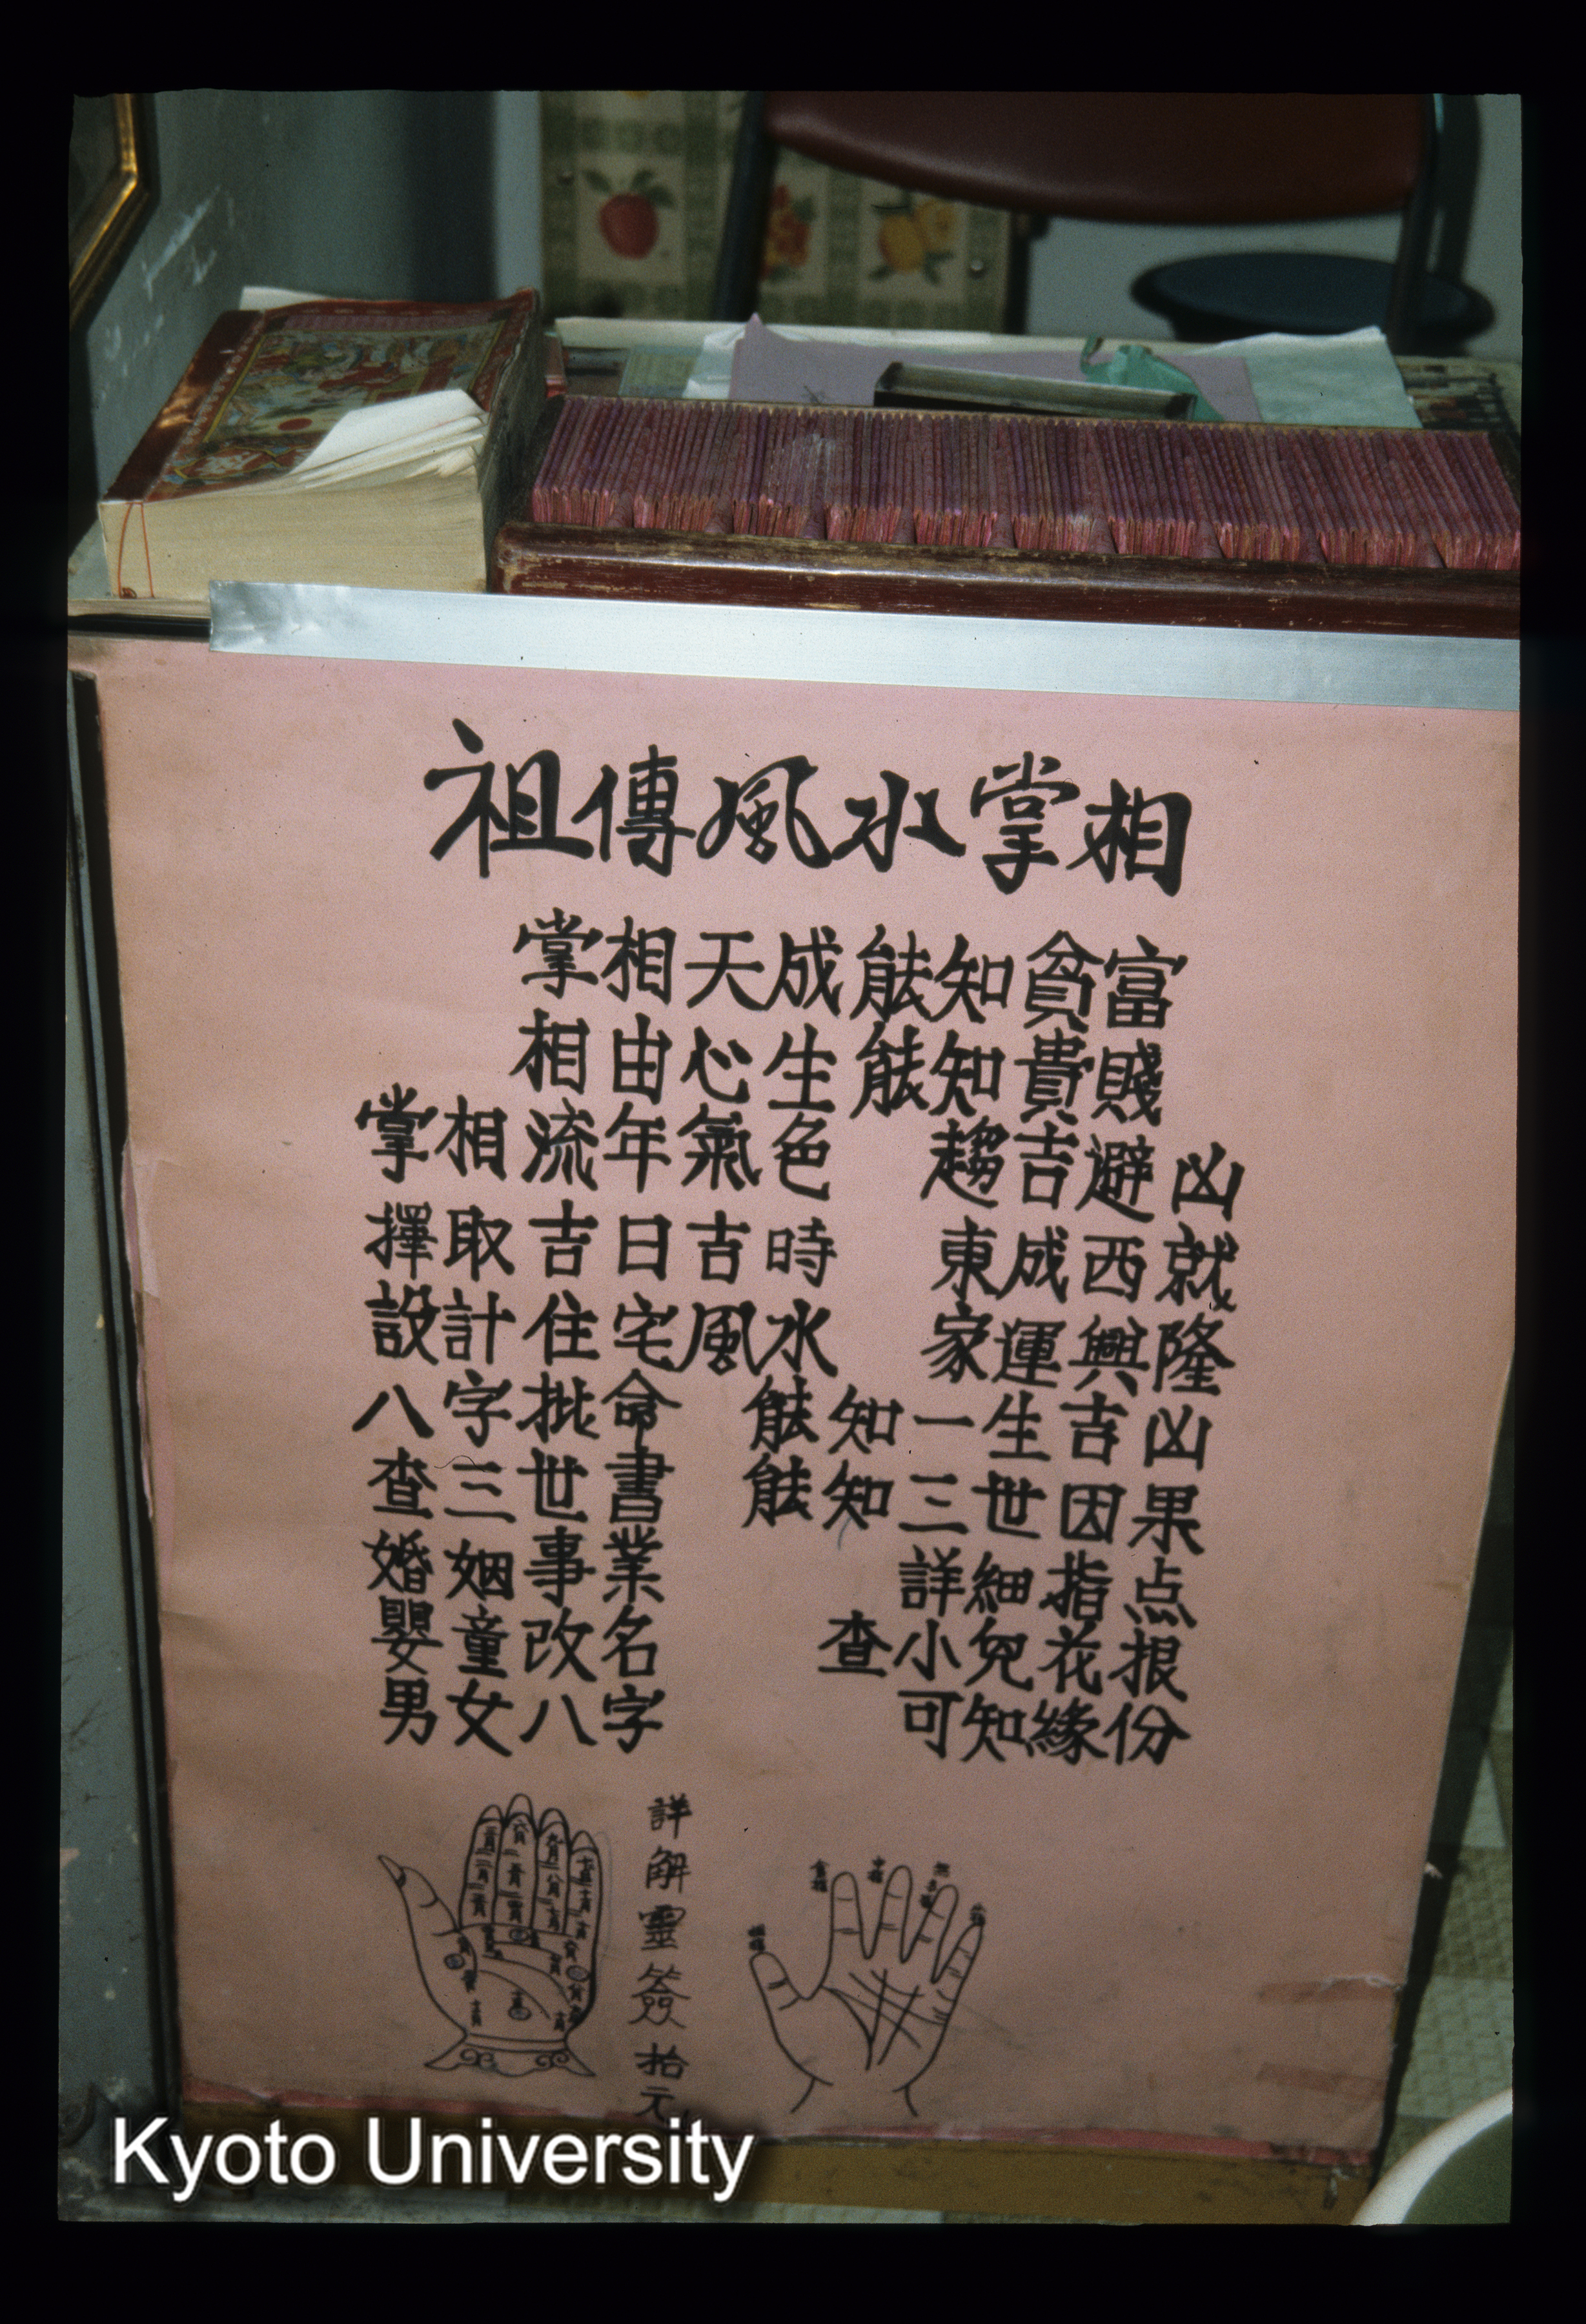 祖傳風水掌相
掌相天成能知貧富
相由心生能知貴賤
掌相流年氣色 趨吉避凶
擇取吉日吉時 東成西就
設計住宅風水 家運興隆
八字批命 能知一生吉凶
查三世書 能知三世因果
婚姻事業 詳細指点
嬰童改名 查小兒花根
男女八字 可知緣份
詳解靈簽拾元
Kyoto University